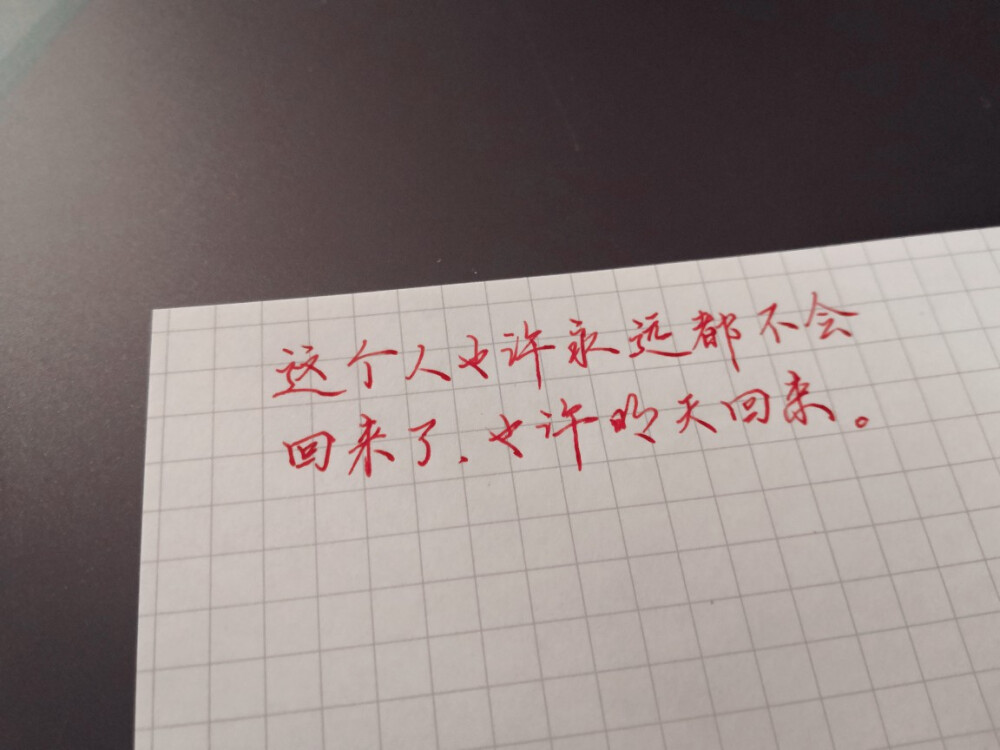 这个人也许永远都不会
回来了，也许明天回来。